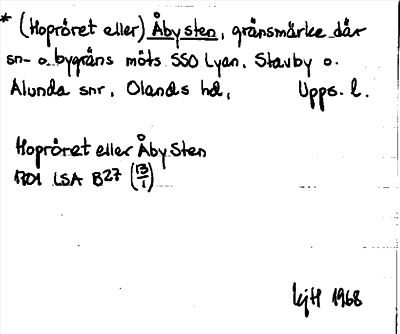 * (Hopröret eller) Åbysten, gränsmärke där
sn- o. bygräns möts SSO Lyan, Stavby o.
Alunda snr, Olands hd, Upps. l.
Hopröret eller Åby Sten
1701 LSA B27 (13/1)
1968